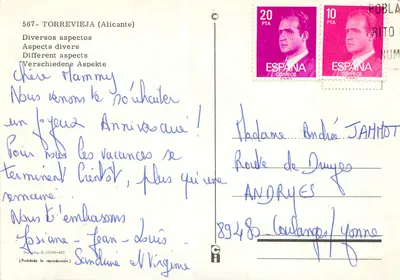 567 - TORREVIEJA (Alicante)
Diversos aspectos
Aspects divers
Different aspects
Verschiedene Aspekte
Chère Mammy
Nous venons te souhaiter
un joyeux Anniversaire !
Pour nous les vacances se
terminent bientôt, plus qu'une
semaine.
Nous t'embrassons
Josiane - Jean-Louis -
Sandrine et Virginie
(Prohibida la reproducción)
20
PTA
ESPAÑA
CORREOS
10
PTA
ESPAÑA
CORREOS
POBLA
Madame André JAMMOT
Route de Druyes
ANDRYES
89480 Coulanges/Yonne